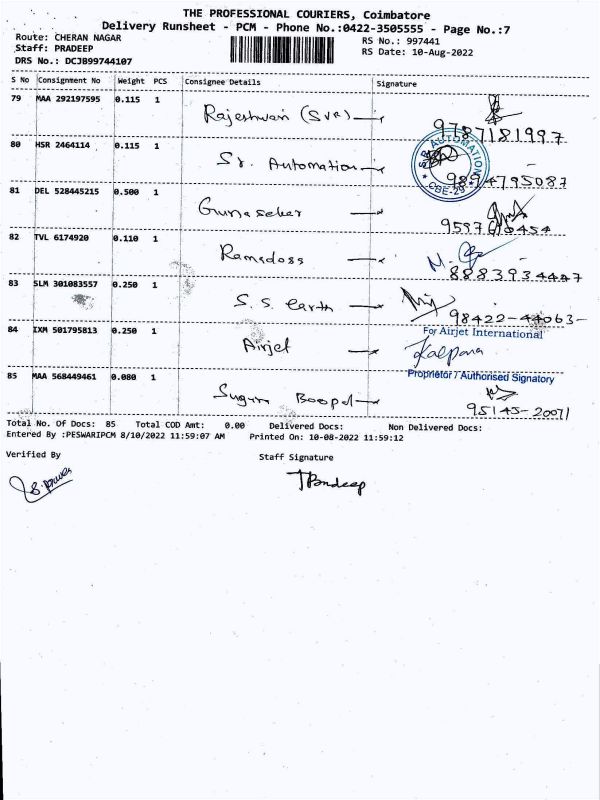 THE PROFESSIONAL COURIERS, Coimbatore
Delivery Runsheet - PCM - Phone No.:0422-3505555 - Page No.:7
Route: CHERAN NAGAR RS No.: 997441
Staff: PRADEEP RS Date: 10-Aug-2022
DRS No.: DCJB99744107
S No Consignment No Weight PCS Consignee Details Signature
79 MAA 292197595 0.115 1 Rajeshwari (SVR) 9787181997
80 HSR 2464114 0.115 1 Sr. Automation 9894795087
AUTOMATION
CBE-29
81 DEL 528445215 0.500 1 Gunasekar
82 TVL 6174920 0.110 1 Ramadoss 8883934447
83 SLM 301083557 0.250 1 S.S. Earth 98422-44063-
84 IXM 501795813 0.250 1 Airjet For Airjet International
Kalpana
Proprietor / Authorised Signatory
85 MAA 568449461 0.080 1 95145-20071
Total No. Of Docs: 85 Total COD Amt: 0.00 Delivered Docs: Non Delivered Docs:
Entered By :PESWARIPCM 8/10/2022 11:59:07 AM Printed On: 10-08-2022 11:59:12
Verified By Staff Signature